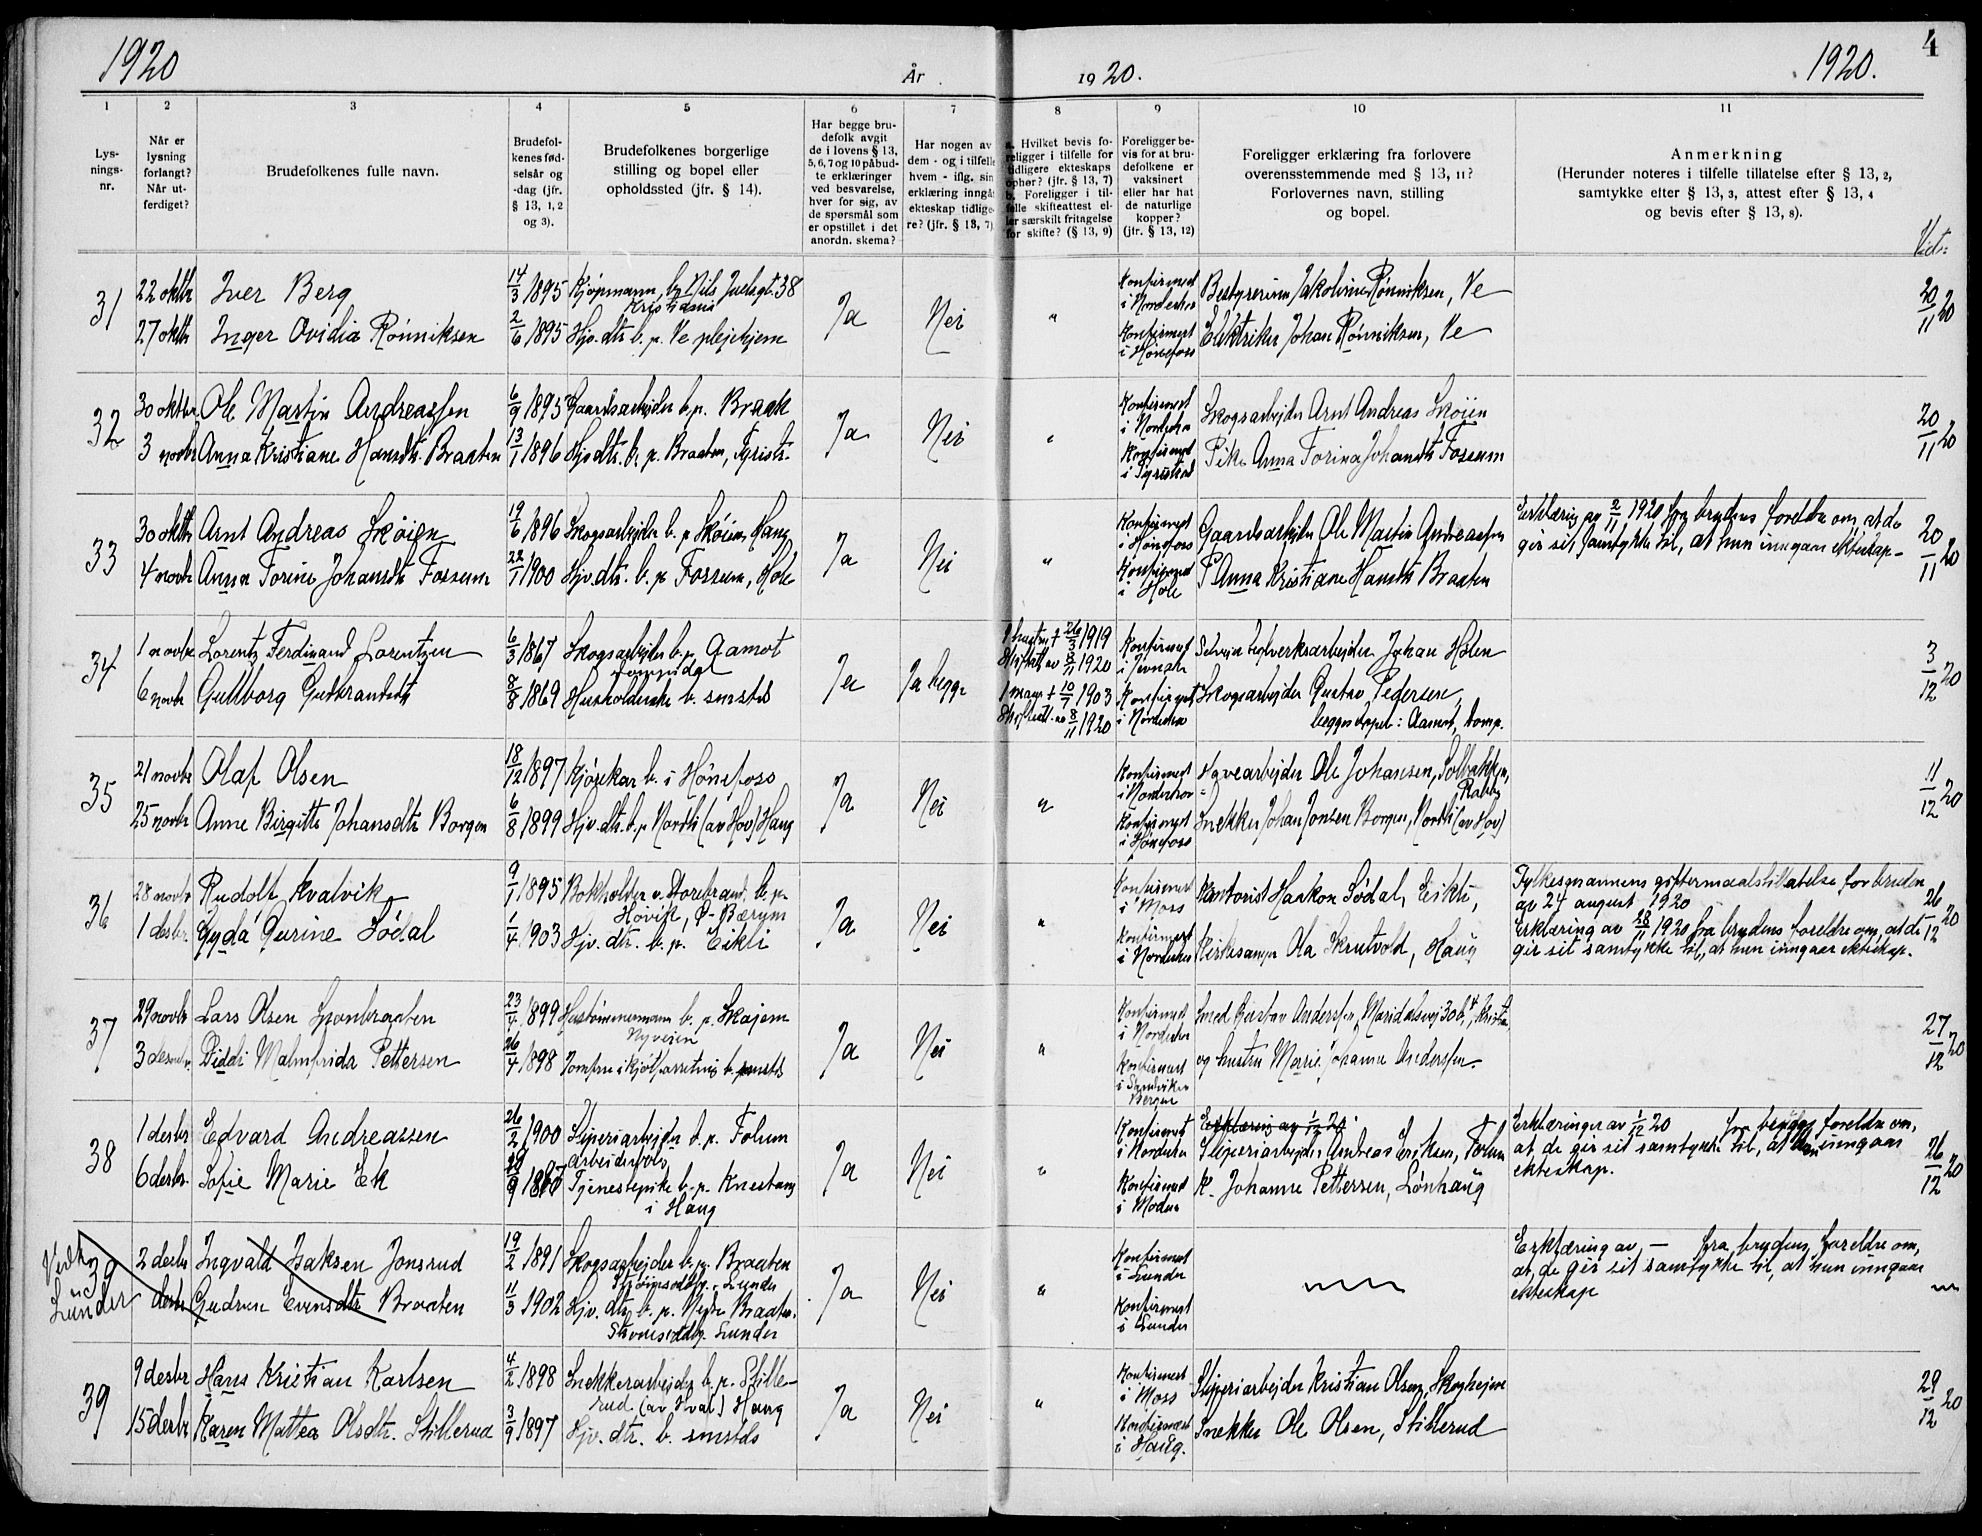 1920
År
19 20.
1920.
4
1
2
3
4
5
6
7
8
9
10
11
Lys-
nings-
nr.
Når er
lysning
forlangt?
Når ut-
ferdiget?
Brudefolkenes fulle navn.
Brudefol-
kenes fød-
selsår og
-dag (jfr.
§ 13, 1, 2
og 3).
Brudefolkenes borgerlige
stilling og bopel eller
opholdssted (jfr. § 14).
Har begge bru-
defolk avgit
de i lovens § 13,
5, 6, 7 og 10 påbud-
te erklæringer
ved besvarelse,
hver for sig, av
de spørsmål som
er opstillet i det
anordn. skema?
Har nogen av
dem - og i tilfelle
hvem - iflg. sin
erklæring inngåt
ekteskap tidlige-
re? (jfr. § 13, 7)
a. Hvilket bevis fo-
religger i tilfelle for
tidligere ekteskaps
ophør? (jfr. § 13, 7)
b. Foreligger i til-
felle skifteattest el-
ler særskilt fritagelse
for skifte? (§ 13, 9)
Foreligger be-
vis for at bru-
defolkene er
vaksinert
eller har hat
de naturlige
kopper?
(jfr. § 13, 12)
Foreligger erklæring fra forlovere
overensstemmende med § 13, 11?
Forlovernes navn, stilling
og bopel.
Anmerkning
(Herunder noteres i tilfelle tillatelse efter § 13, 2,
samtykke efter § 13, 3, attest efter § 13, 4
og bevis efter § 13, 8).
31
22 oktbr
Iver Berg
14/3 1895
Kjøpmann, b. Nils Juelsgt. 38
Kristiania
27 oktbr
Inger Ovidia Rønniksen
2/6 1895
Hjv. dtr. b. p. Ve plejehjem
Ja
Nei
"
Konfirmert
i Norderhov
Konfirmert
i Hønefoss
Bestyrerinne Jakobine Rønniksen, Ve
Elektriker Johan Rønniksen, Ve
20/11 20
32
30 oktbr
Ole Martin Andreassen
6/9 1895
Gaardsarbejder b. p. Braak
3 novbr
Anna Kristiane Hansdtr. Braaten
13/1 1896
Hjv. dtr. b. p. Braaten, Tyristr.
Ja
Nei
"
Konfirmert
i Norderhov
Konfirmert
i Tyristrand
Skogsarbejder Arnt Andreas Skøien
Pike Anna Torina Johansdtr Fossum
20/11 20
33
30 oktbr
Arnt Andreas Skøien
19/6 1896
Skogsarbejder b. p. Skøien, Haug
4 novbr
Anna Torine Johansdtr Fossum
22/1 1900
Hjv. dtr. b. p. Fossum, Hole
Ja
Nei
"
Konfirmert
i Hønefoss
Konfirmert
i Hole
Gaardsarbejder Ole Martin Andreassen
P. Anna Kristiane Hansdtr Braaten
Erklæring av 2/11 1920 fra brudens foreldre om, at de
gir sit samtykke til, at hun inngaar ekteskap-
20/11 20
34
1 novbr
Lorentz Ferdinand Lorentzen
6/3 1867
Skogsarbejder b. p. Aamot
6 novbr
Gullborg Gulbrandsdtr
8/8 1869
Husholderske b. smstds
Ja
Ja begge
1 hustru † 26/3 1919
Skifteatt. av 8/11 1920
1 mann † 10/7 1903
Skifteatt. av 8/11 1920
Konfirmert
i Jevnaker
Konfirmert
i Norderhov
Johan Holen
Skogsarbejder Gustav Pedersen,
begges bopel: Aamot, Somd.
3/12 20
35
21 novbr
Olaf Olsen
18/12 1897
Kjørekar b. i Hønefoss
25 novbr
Anne Birgitte Johansdtr Borgen
6/8 1899
Hjv. dtr. b. p. Nordli (av Hov) Haug
Ja
Nei
"
Konfirmert
i Norderhov
Konfirmert
i Hønefoss
Havearbejder Ole Johansen, Solbakken,
Snekker Johan Jonsen Borgen, Nordli (av Hov)
11/12 20
36
28 novbr
Rudolf Kvalvik
9/1 1895
Bokholder v. Storebrand b. p.
Høvik, Ø-Bærum
1 desbr.
Gyda Gurine Södal
1/4 1903
Hjv. dtr. b. p. Eikli
Ja
Nei
"
Konfirmert
i Moss
Konfirmert
i Norderhov
Kontorist Haakon Södal, Eikli,
Kirkesanger Ola Skrutvold, Haug
Fylkesmannens giftermaalstillatelse for bruden
av 24 august 1920
Erklæring av 28/11 1920 fra brudens foreldre om, at de
gir sit samtykke til, at hun inngaar ekteskap.
26/12 20
37
29 novbr
Lars Olsen Granbraaten
23/4 1899
Hustømmermann b. p. Skajem
Nyveien
3 desbr.
Diddi Malmfrida Pettersen
26/4 1898
Jomfru i kjøkkasserting b. smstds
Ja
Nei
"
Konfirmert
i Norderhov
Konfirmert
i Sandviken
Bergen
Smed Gustav Andersen, Maridalsvej 30 b, Kristia
og hustru Marie Johanne Andersen.
27/12 20
38
1 desbr
Edvard Andreassen
26/2 1900
Sliperiarbejder b. p. Follum
arbeiderbolig
6 desbr.
Sofie Marie Ek
Tjenestepike b. p. Knestang
i Haug
Ja
Nei
"
Konfirmert
i Norderhov
Konfirmert
i Modum
Erklæring av 1/12 20.
Sliperiarbejder Andreas Eriksen, Follum
K. Johanne Pettersen, Lönhaug
Erklæringer av 1/12 20 fra begges foreldre om,
at de gir sit samtykke til, at inngaar
ekteskap.
26/12 20
39
Lunder
2 desbr
Ingvald Isaksen Jonsrud
19/2 1891
Skogsarbejder b. p. Braaten
Strømsoddby. Lunder
desbr
Gudrun Evensdtr Braaten
11/3 1902
Hjv. dtr. b. p. Nedre Braaten.
Strømsoddby. Lunder
Ja
Nei
"
Konfirmert
i Lunder
Konfirmert
i Lunder
Erklæring av — fra brudens foreldre om,
at de gir sit samtykke til, at hun inngaar
ekteskap
39
9 desbr
Hans Kristian Karlsen
4/2 1898
Snekkerarbejder b. p. Stille-
rud (av Hval) Haug
15 desbr
Karen Mattea Olsdtr. Stillerud
3/9 1897
Hjv. dtr. b. smstds
Ja
Nei
"
Konfirmert
i Moss
Konfirmert
i Haug.
Sliperiarbejder Kristian Olsen, Skoghejem
Snekker Ole Olsen, Stillerud
29/12 20